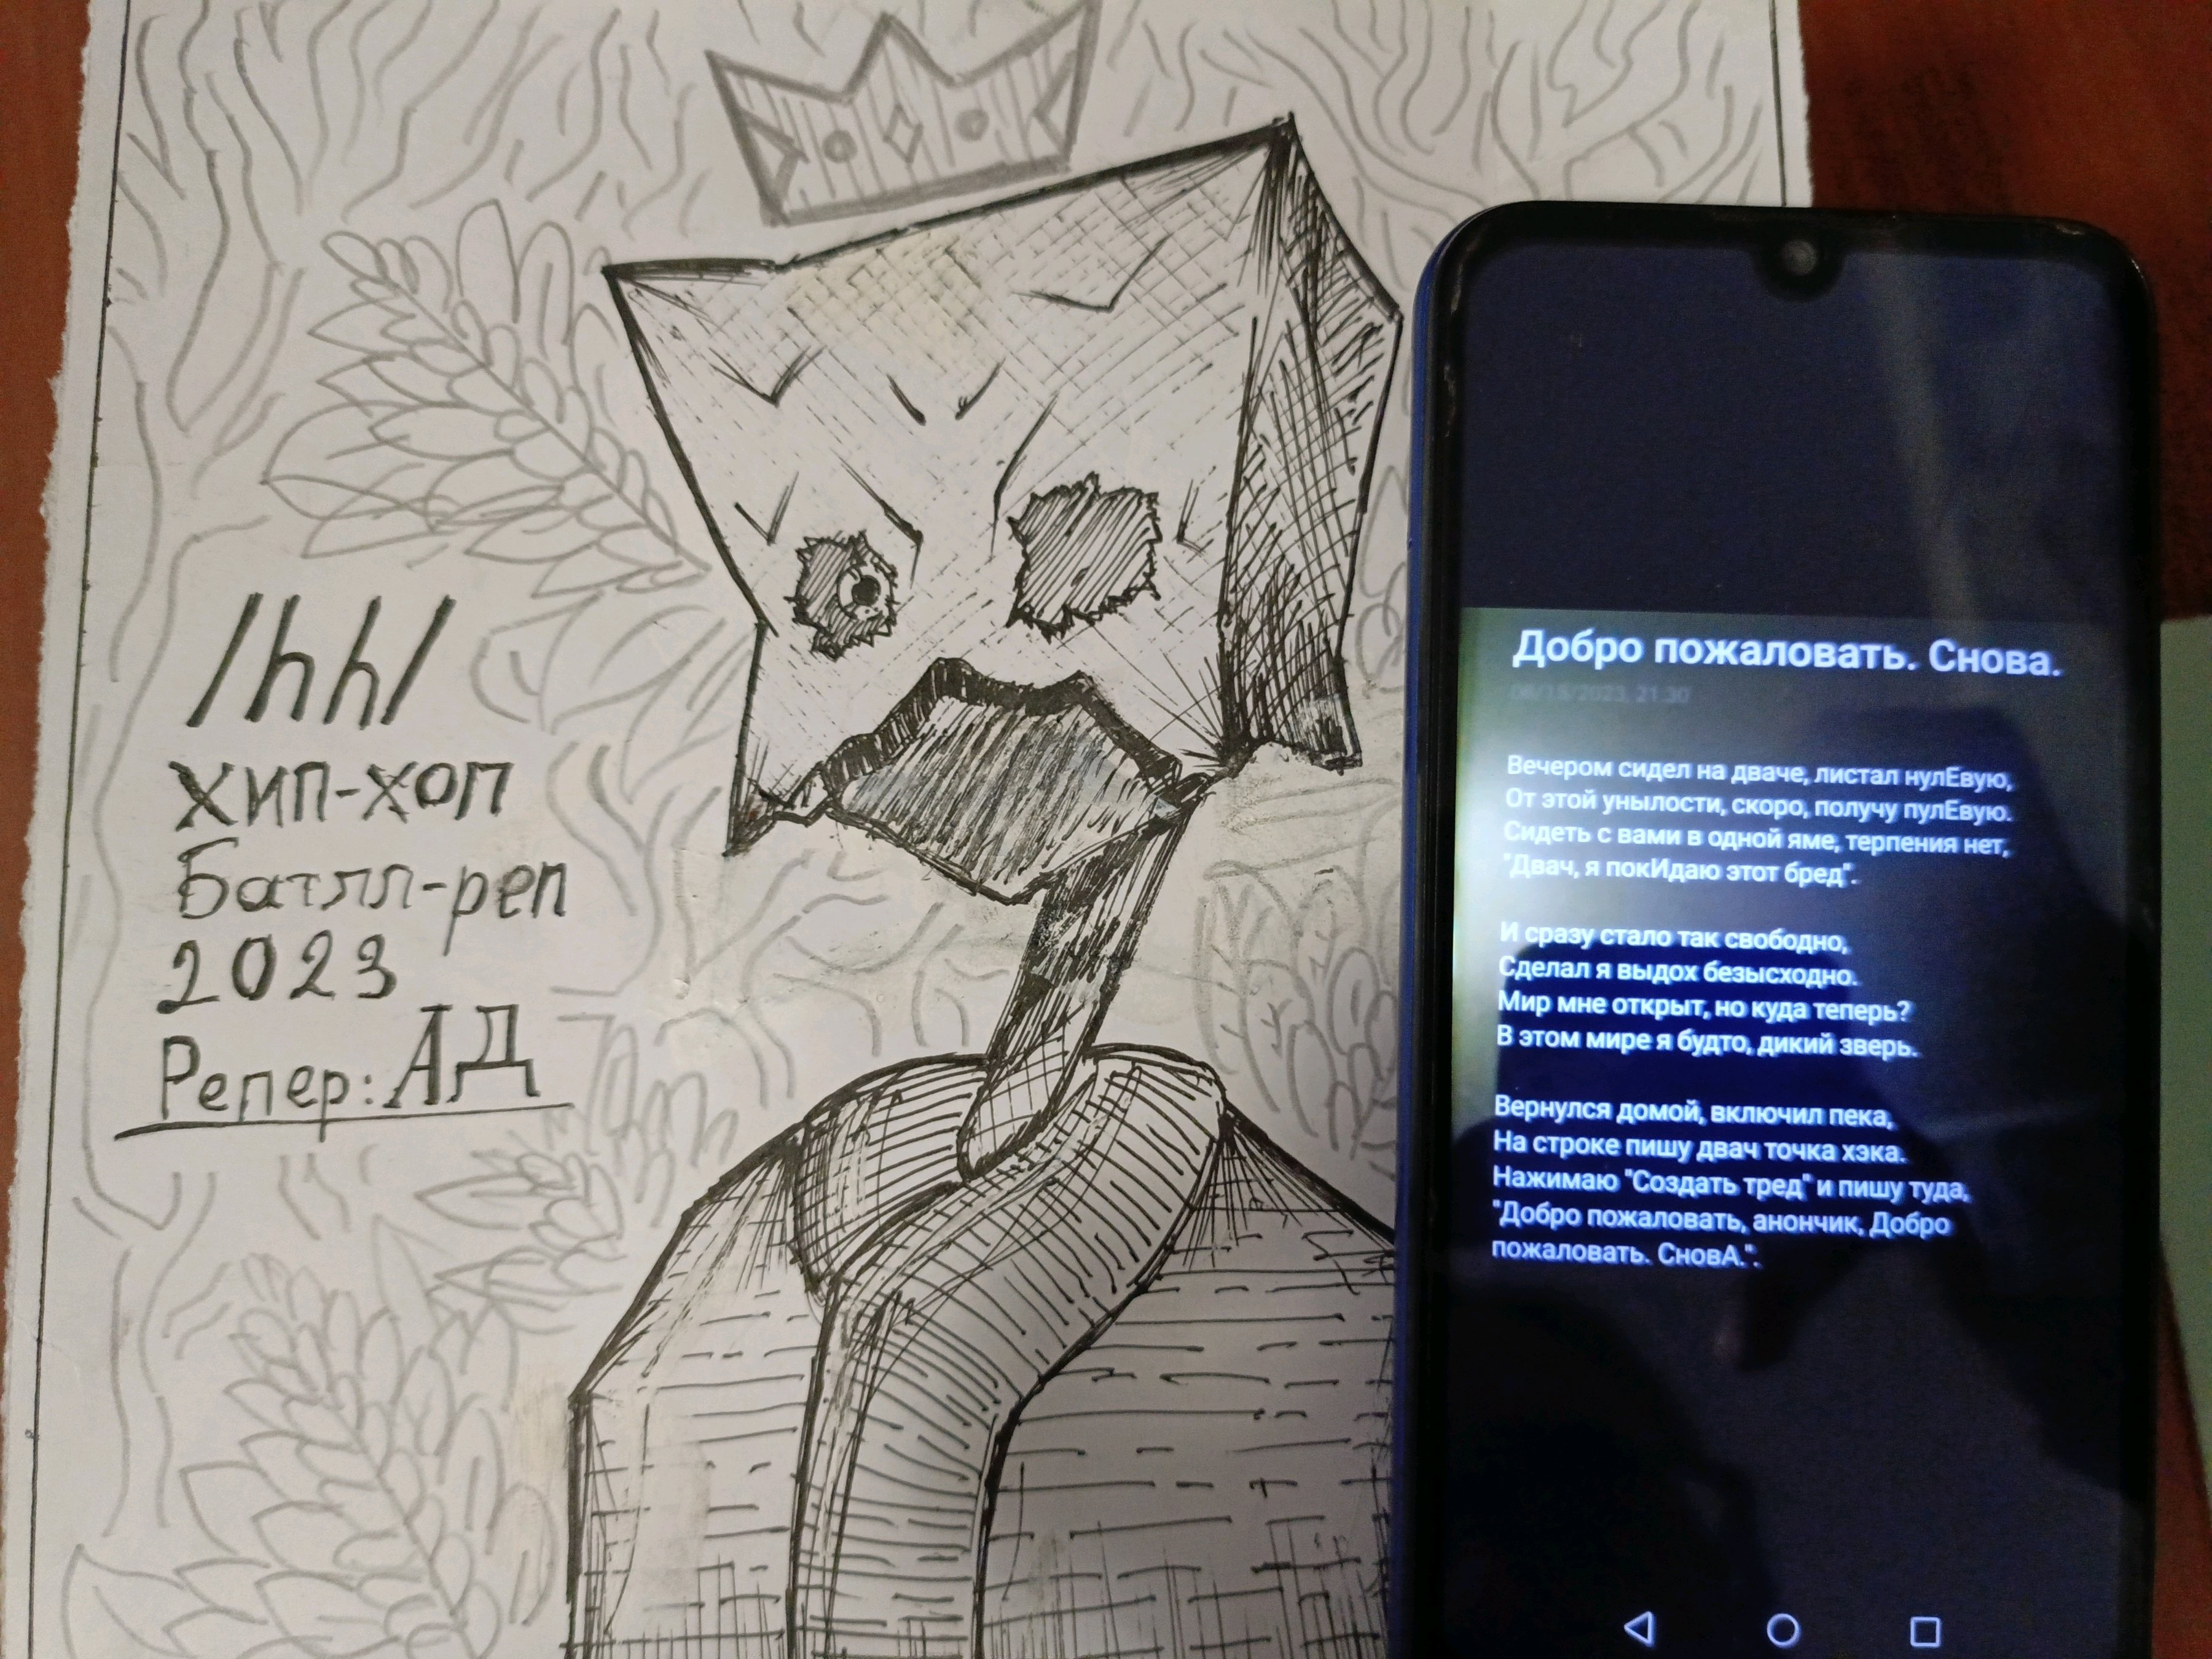 /hh/
хип-хоп
Батлл-реп
2023
Репер: АД
Добро пожаловать. Снова.
08/18/2023, 21:30
Вечером сидел на дваче, листал нулЕвую,
От этой унылости, скоро, получу пулЕвую.
Сидеть с вами в одной яме, терпения нет,
"Двач, я покИдаю этот бред".
И сразу стало так свободно,
Сделал я выдох безысходно.
Мир мне открыт, но куда теперь?
В этом мире я будто, дикий зверь.
Вернулся домой, включил пека,
На строке пишу двач точка хэка.
Нажимаю "Создать тред" и пишу туда,
"Добро пожаловать, анончик, Добро
пожаловать. СновА.".